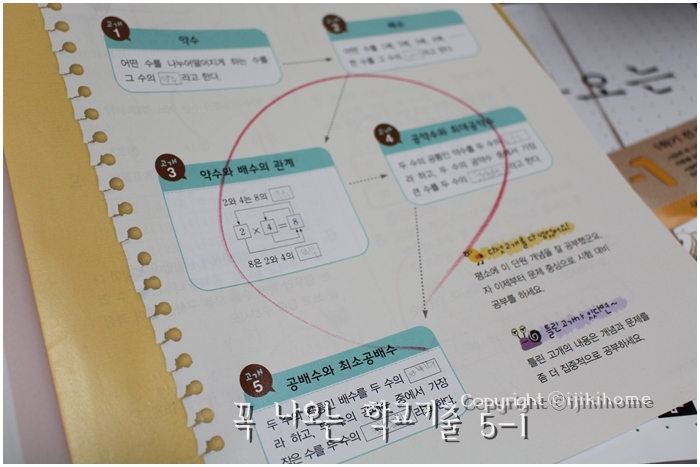 고개
1
약수
어떤 수를 나누어떨어지게 하는 수를
그 수의 약수 라고 한다.
고개
2
배수
어떤 수를 1배, 2배, 3배, 4배, ……
한 수를 그 수의 라고 한다.
고개
3
약수와 배수의 관계
2와 4는 8의 약수
2 × 4 = 8
8은 2와 4의 배수
고개
4
공약수와 최대공약수
두 수의 공통인 약수를 두 수의
라 하고, 두 수의 공약수 중에서 가장
큰 수를 두 수의 라고 한다.
다섯 고개를 다 넘었어요!
평소에 이 단원 개념을 잘 공부했군요.
자 이제부터 문제 중심으로 시험 대비
공부를 하세요.
틀린 고개가 있다면~
틀린 고개의 내용은 개념과 문제를
좀 더 집중적으로 공부하세요.
고개
5
공배수와 최소공배수
두 수의 공통인 배수를 두 수의
라 하고, 두 수의 공배수 중에서 가장
작은 수를 두 수의 라고 한다.
Copyright ⓒijikihome
꼭 나오는 학교기출 5-1